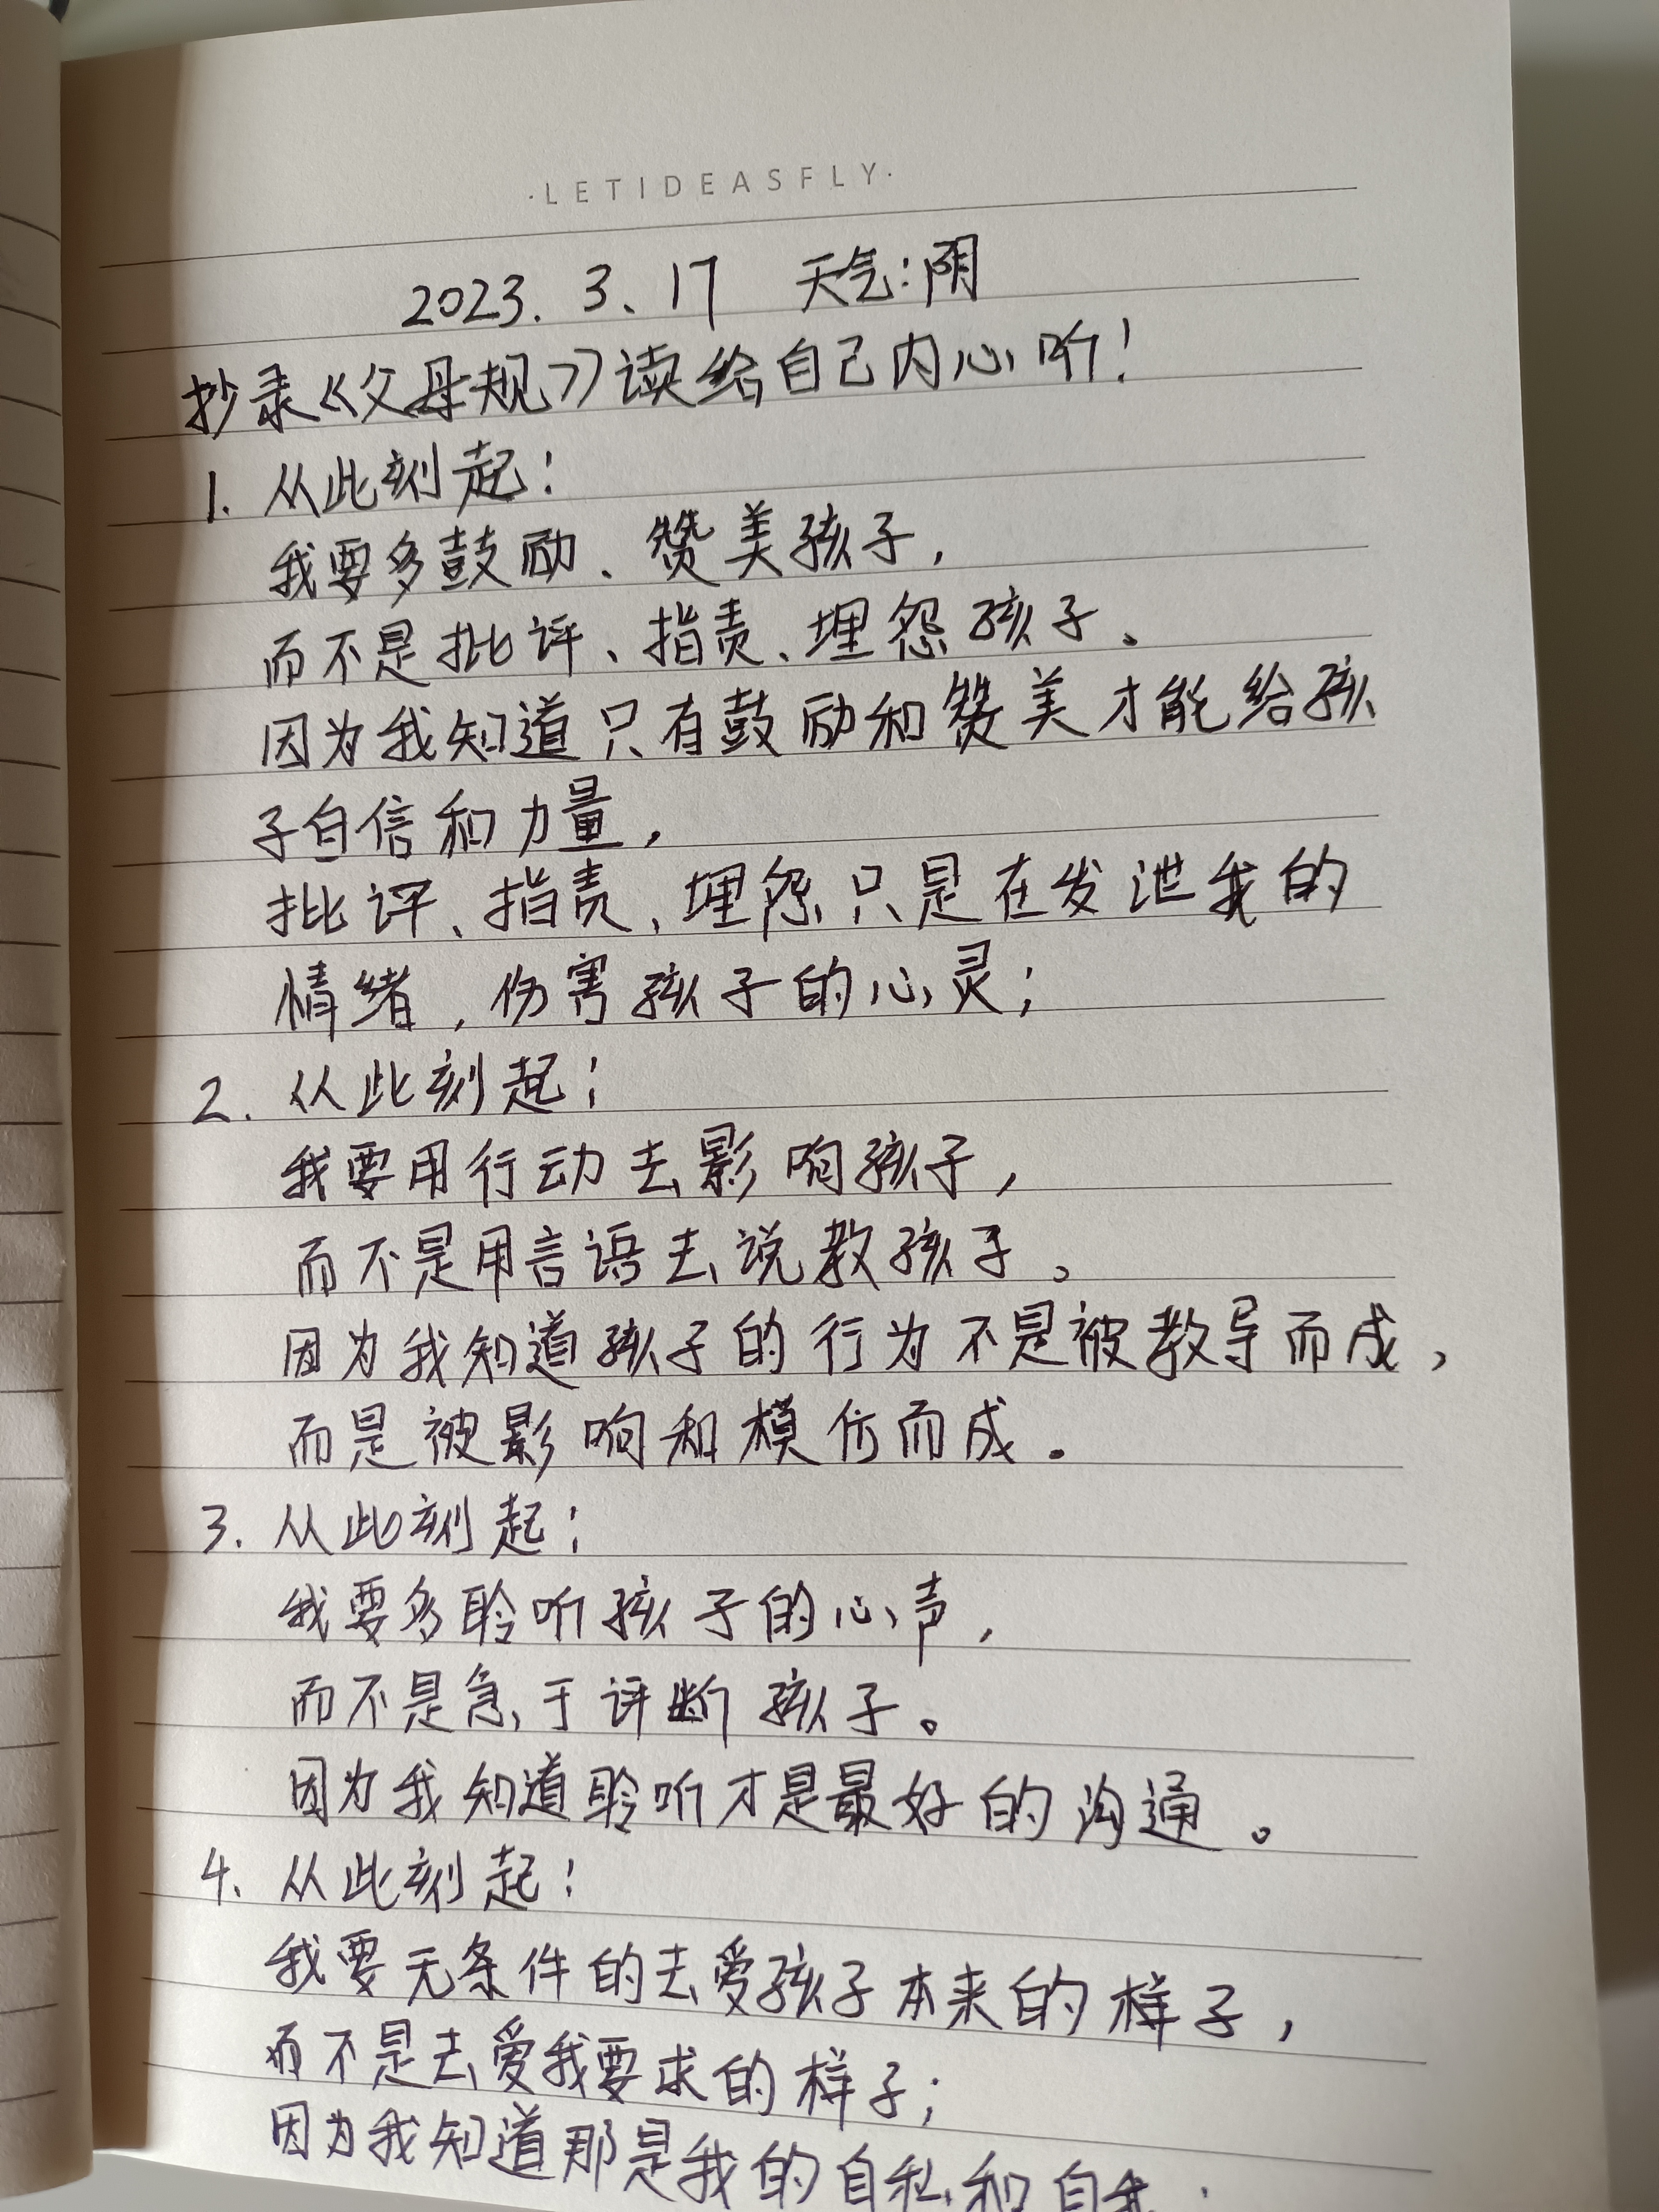 ·LETIDEASFLY·
2023. 3、17 天气:阴
抄录《父母规》读给自己内心听!
1. 从此刻起:
我要多鼓励、赞美孩子,
而不是批评、指责、埋怨孩子。
因为我知道只有鼓励和赞美才能给孩
子自信和力量,
批评、指责、埋怨只是在发泄我的
情绪,伤害孩子的心灵;
2. 从此刻起:
我要用行动去影响孩子,
而不是用言语去说教孩子。
因为我知道孩子的行为不是被教导而成,
而是被影响和模仿而成。
3. 从此刻起:
我要多聆听孩子的心声,
而不是急于评断孩子。
因为我知道聆听才是最好的沟通。
4、从此刻起:
我要无条件的去爱孩子本来的样子,
而不是去爱我要求的样子;
因为我知道那是我的自私和自我